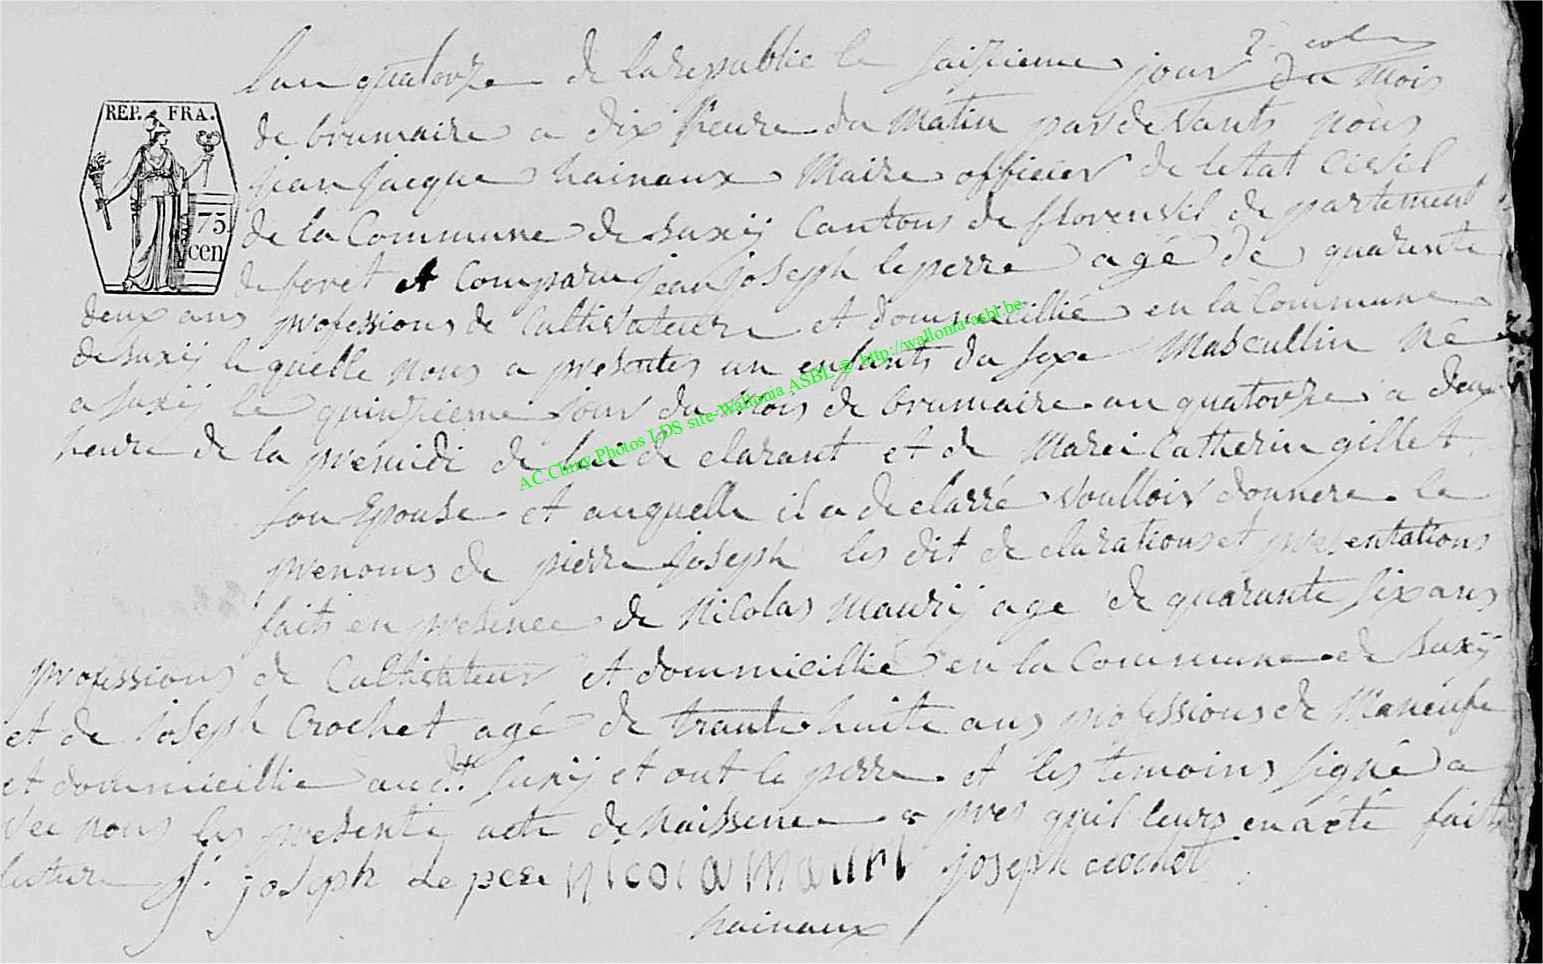 2e cole
Lan quatorze de la republic le saizieme jour du Mois
REP. FRA.
75
cen
de brumaire a dix heure du Matin pardevants nous
jean jacque hainaux Maire officier de letat Civil
de la Commune de suxÿ Cantons de florenvil de partement
de foret et Comparu jean joseph lepeere agé de quarente
deux ans professions de Cultivateure et dommeicillié en la Commune
de suxÿ le quelle nous a presentes un enfants du sexe Mascullin né
a suxÿ le quinzieme jour du Mois de brumaire an quatorze a deux
heure de la premidi de lui de clarant et de Marei Catherin gillet
son Epouse et auquelle il a de clarré voulloir donnere le
prenoms de pierre joseph les dit de clarations et presentations
faits en presence de Nicolas Maurÿ age de quarante six ans
professions de Cultivateur et dommeicillié en la Commune de suxÿ
et de joseph Crochet agé de trante huite ans professions de Maneufe
et dommeicillie aud.t suxÿ et ont le perre et les temoins signé a
vec nous les presente acte de Naissence a pres quil leurs en a été faite
lecture J. joseph Lepere nicola mauri joseph crochet
hainaux
AC.Chiny Photos LDS site-Wallonia ASBL @ http://wallonia-asbl.be